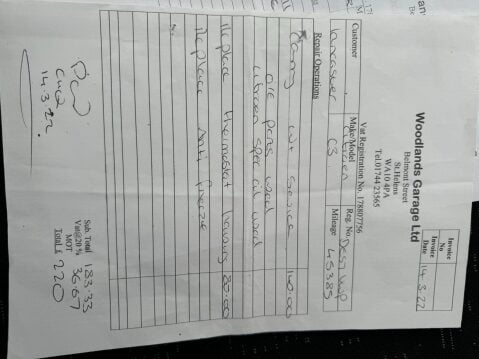 Woodlands Garage Ltd
Belmont Street
St.Helens
WA10 4PA
Tel.01744 23565
Invoice
No
Invoice
Date 14.3.22
Vat Registration No. 178807756
Customer Make/Model Reg. No
Lancaster Citroen C3 Mileage 45385
Repair Operations
Carry out service 140.00
oil parts used
citroen spec oil used
Replace thermostat housing 80.00
Replace Anti freeze
Sub. Total 183.33
Vat@20 % 36.67
MOT
Total £ 220
14.3.22